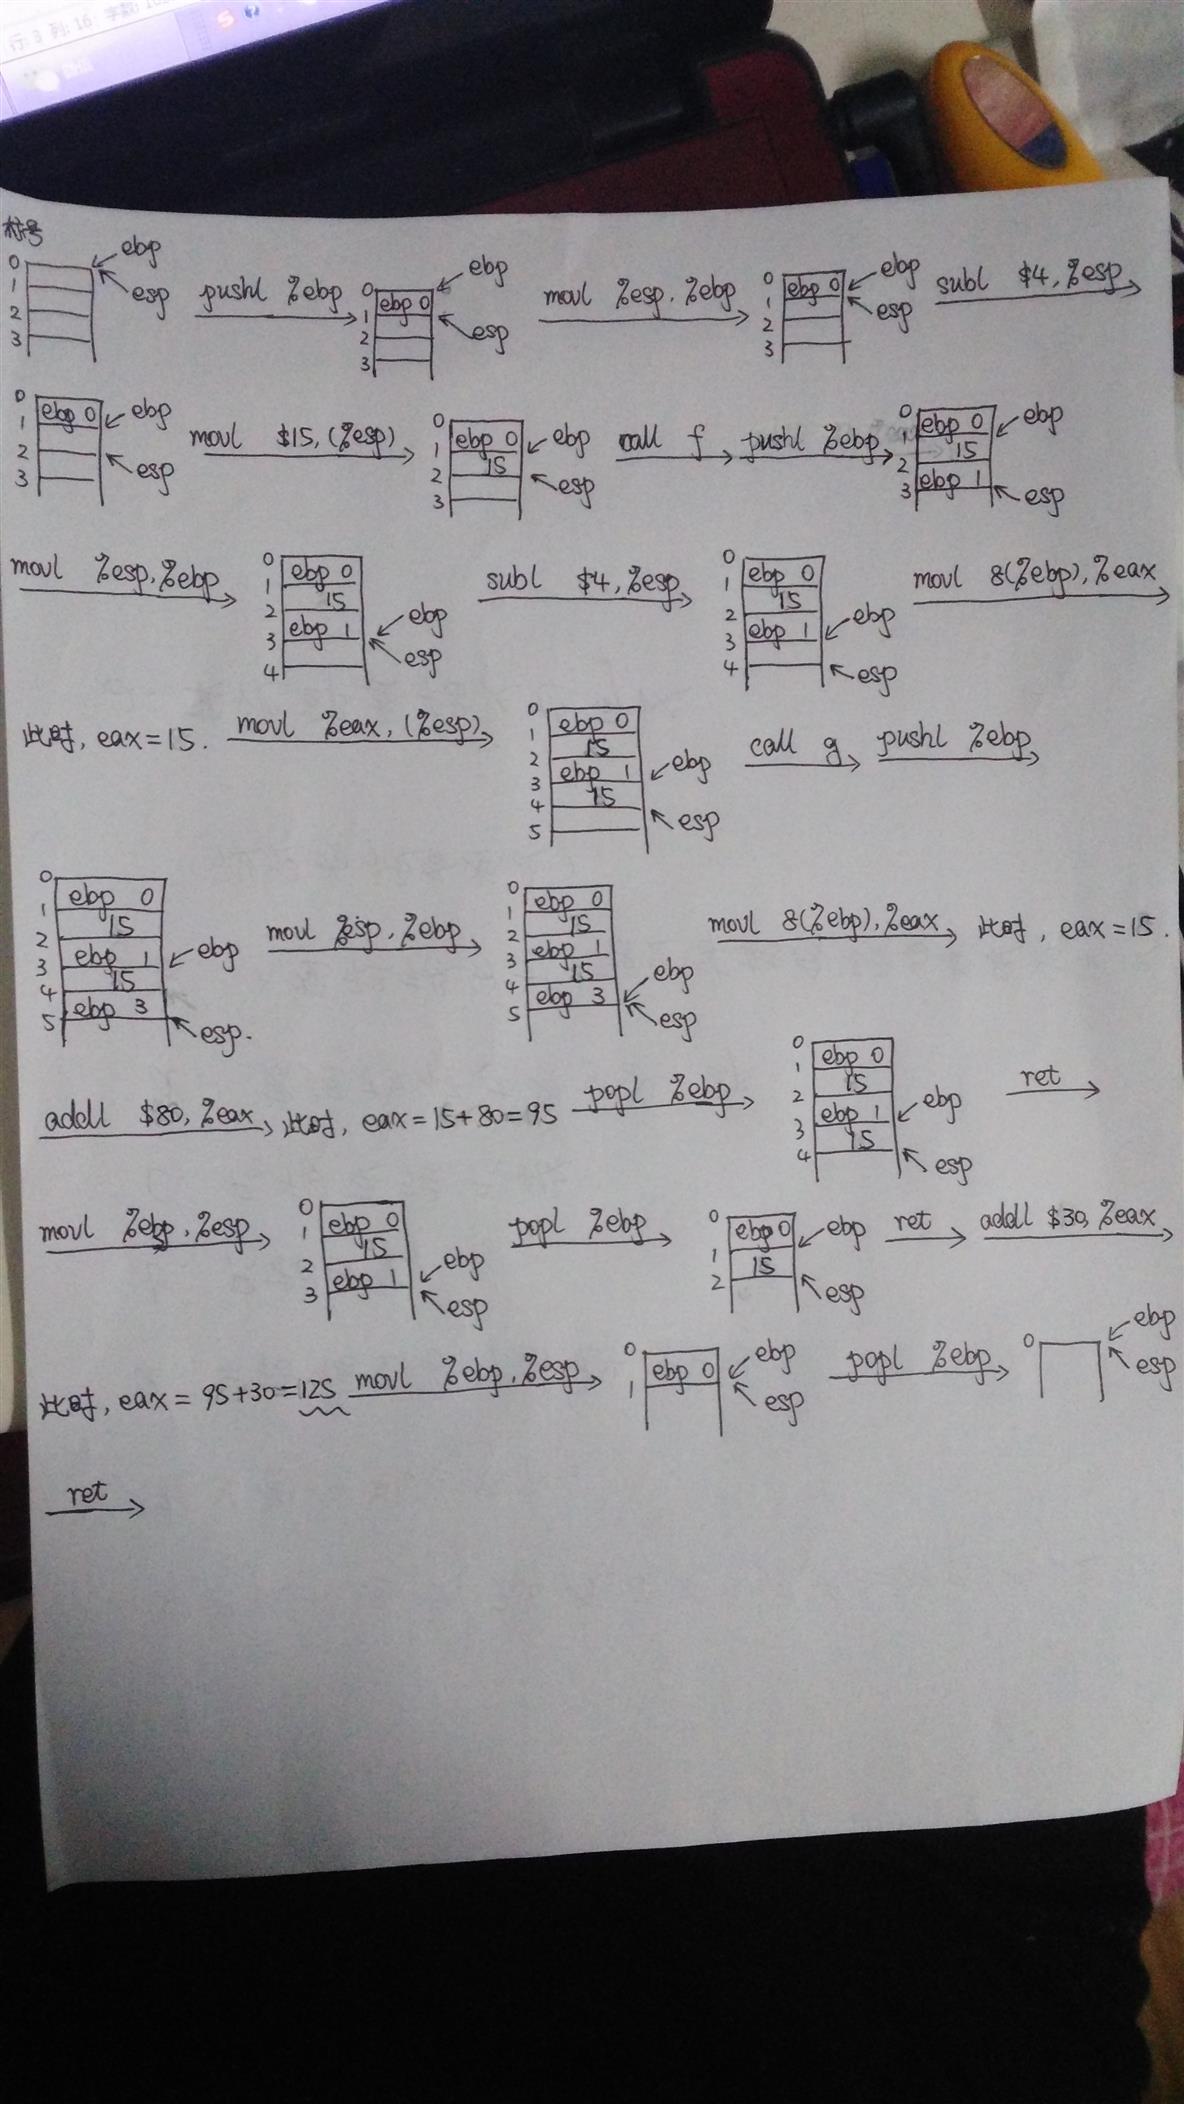 行: 3 列: 16 字数:
标号
0 1 2 3 ebp esp pushl %ebp 0 1 2 3 ebp 0 ebp esp movl %esp, %ebp 0 1 2 3 ebp 0 ebp esp subl $4, %esp
0 1 2 3 ebp 0 ebp esp movl $15, (%esp) 0 1 2 3 ebp 0 15 ebp esp call f pushl %ebp 0 1 2 3 ebp 0 15 ebp 1 ebp esp
movl %esp, %ebp 0 1 2 3 4 ebp 0 15 ebp 1 ebp esp subl $4, %esp 0 1 2 3 4 ebp 0 15 ebp 1 ebp esp movl 8(%ebp), %eax
此时, eax=15. movl %eax, (%esp) 0 1 2 3 4 5 ebp 0 15 ebp 1 15 ebp esp call g pushl %ebp
0 1 2 3 4 5 ebp 0 15 ebp 1 15 ebp 3 ebp esp. movl %esp, %ebp 0 1 2 3 4 5 ebp 0 15 ebp 1 15 ebp 3 ebp esp movl 8(%ebp), %eax 此时, eax=15.
addl $80, %eax 此时, eax=15+80=95 popl %ebp 0 1 2 3 4 ebp 0 15 ebp 1 15 ebp esp ret
movl %ebp, %esp 0 1 2 3 ebp 0 15 ebp 1 ebp esp popl %ebp 0 1 2 ebp 0 15 ebp esp ret addl $30, %eax
此时, eax=95+30=125 movl %ebp, %esp 0 1 ebp 0 ebp esp popl %ebp 0 ebp esp
ret